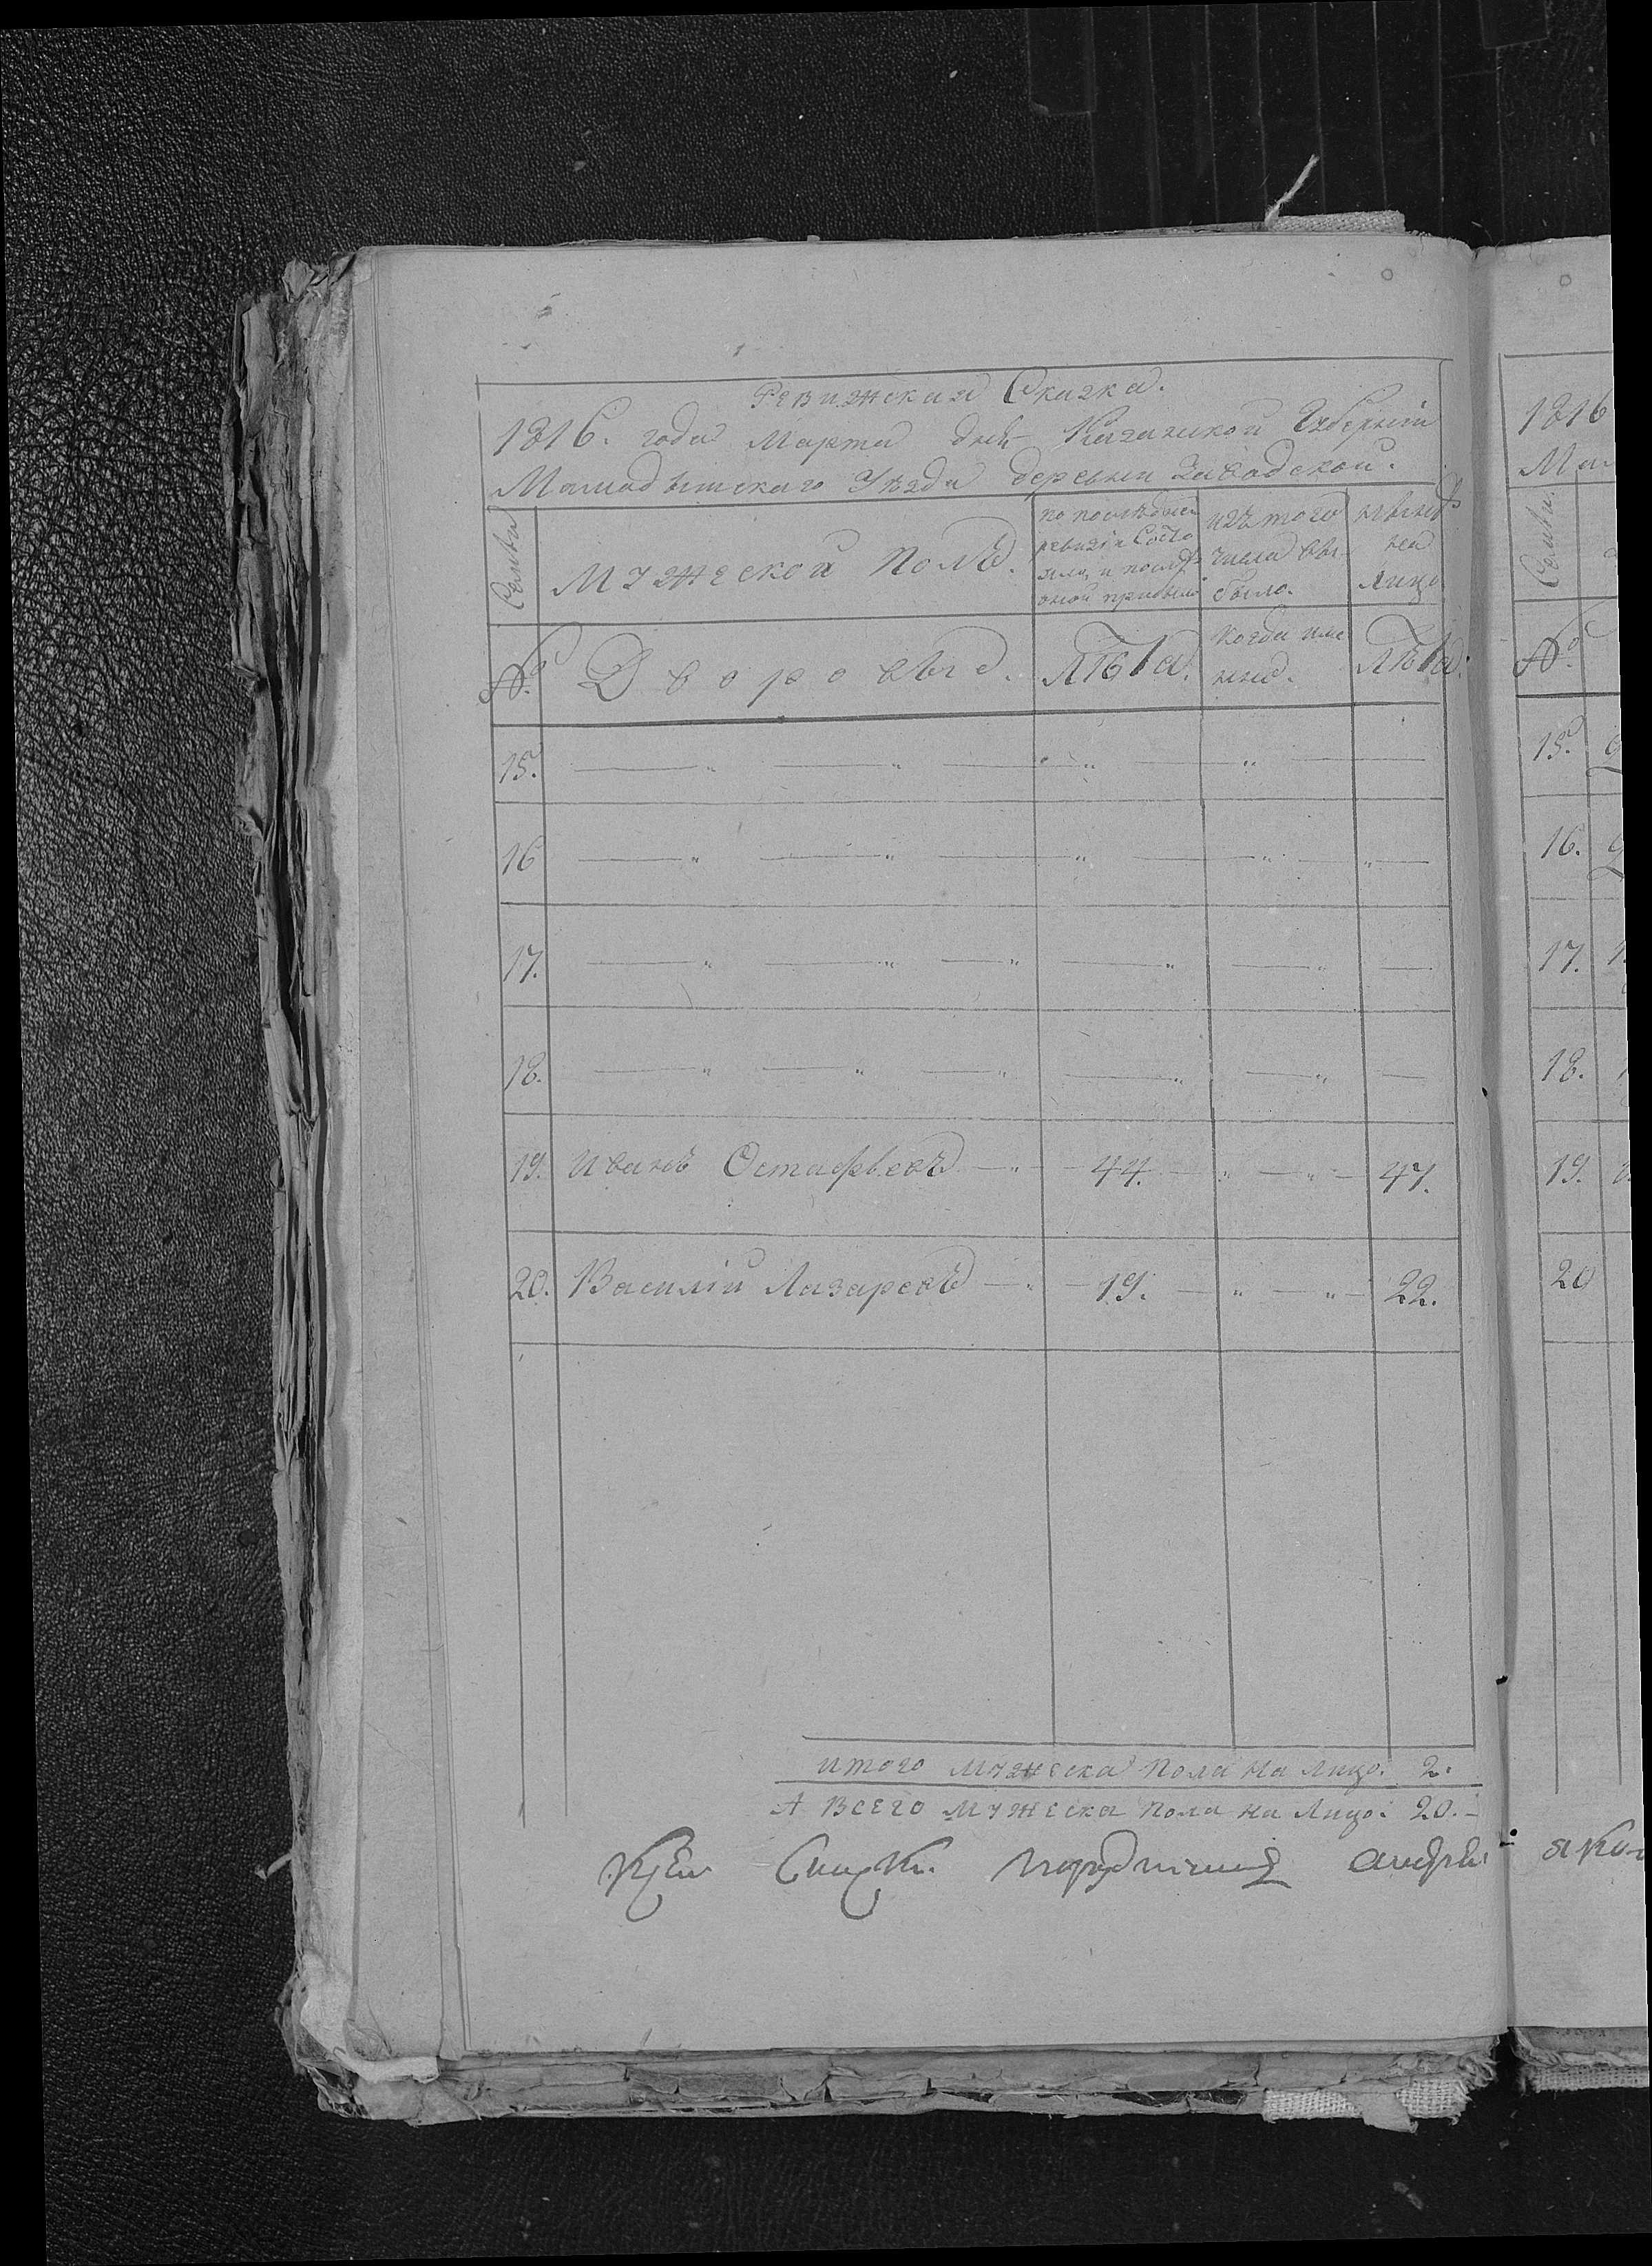 Ревижская Сказка.
1816. года Марта дня Казанской Губернiи
Мамадышскаго Уезда деревни Заводской.
Семьи
Мужеской Полъ.
по последней
ревизiи Состо
яло, и после
оной прибыло
изъ того
числа вы
было.
ныне
на
лицо
№
Дворовые.
Лѣта.
когда име
нно.
Лѣта.
15.
16
17.
18.
19. Иванъ Остафьевъ 44. 47.
20. Василiй Лазаревъ 19. 22.
итого мужеска пола на лицо. 2.
А всего мужеска пола на лицо. 20.
Къ Сей
1816
Семьи
№
15.
16.
17.
18.
19.
20